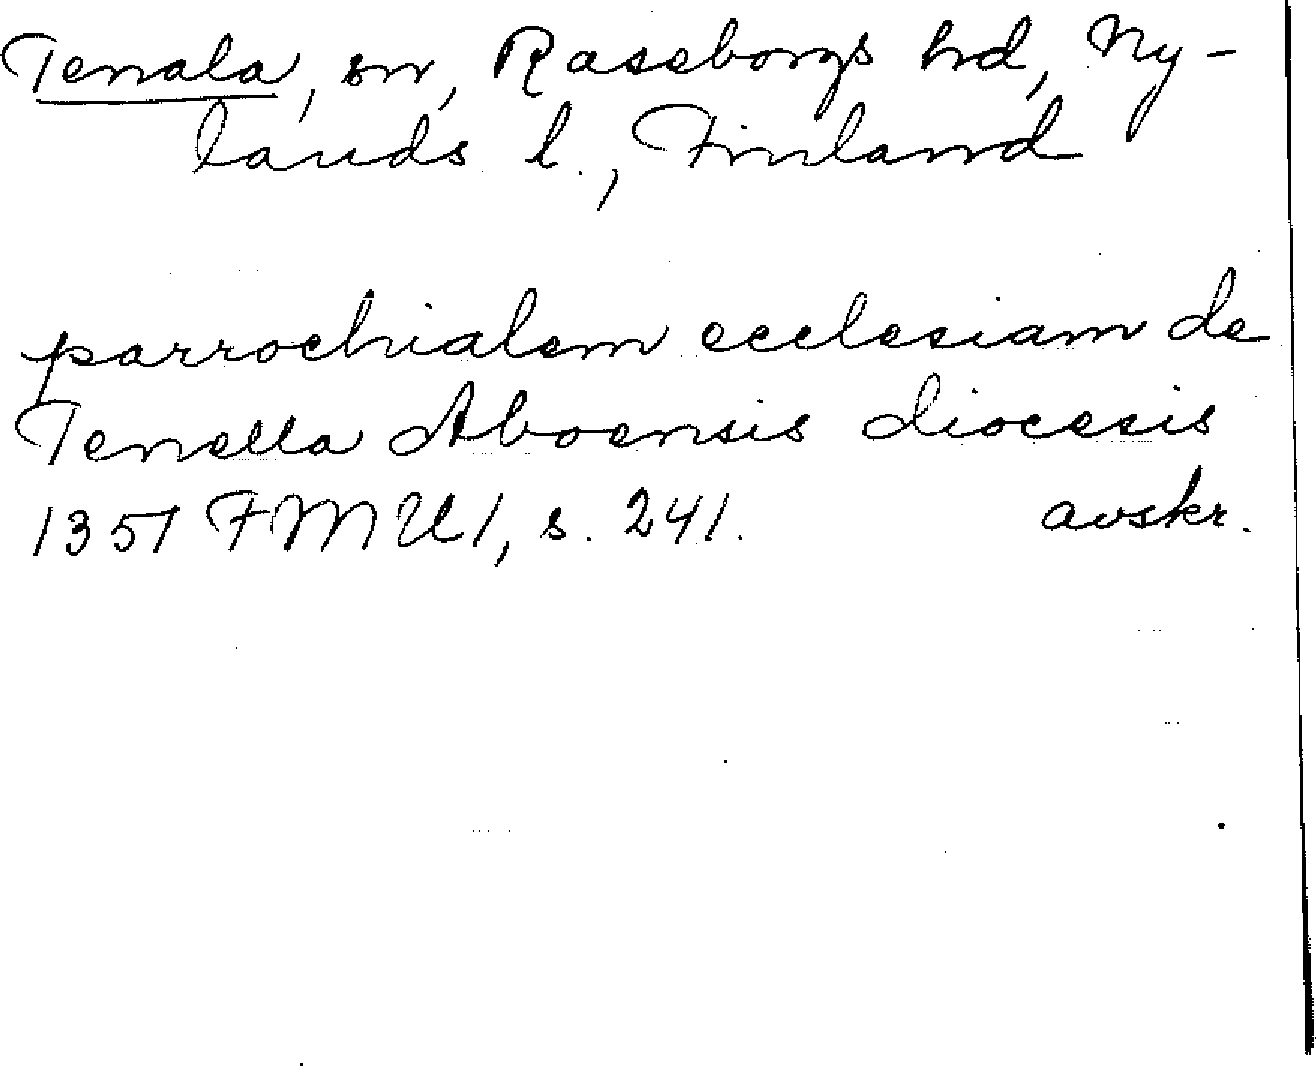 Tenala, sn, Raseborgs hd, Ny-
lands l., Finland
parrochialem ecclesiam de
Tenella Aboensis diocesis
1351 FMU 1, s. 241. avskr.